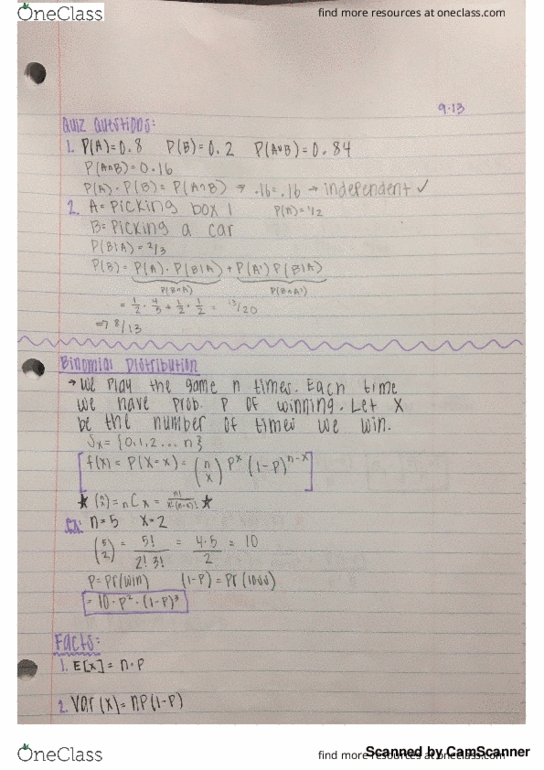 OneClass
find more resources at oneclass.com
9.13
Quiz Questions:
1. P(A)=0.8 P(B)=0.2 P(A∪B)=0.84
P(A∩B)=0.16
P(A)·P(B)=P(A∩B) → .16=.16 → independent ✓
2. A= Picking box 1 P(A)=1/2
B= Picking a car
P(B|A)=2/3
P(B)= P(A)·P(B|A)+P(A')P(B|A)
P(B∩A) P(B∩A')
= 1/2 · 4/5 + 1/2 · 1/2 = 13/20
=> 8/13
Binomial Distribution
→ We play the game n times. Each time
we have prob. P of winning. Let X
be the number of times we win.
Sx = {0,1,2 ... n}
f(x) = P(X=x) = (n x) P^x (1-P)^n-x
★ (n x) = nCx = n!/x!(n-x)! ★
Ex: n=5 x=2
(5 2) = 5!/2! 3! = 4·5/2 = 10
P=Pr(win) (1-P)=Pr(lose)
= 10·P²·(1-P)³
Facts:
1. E[x]= n·P
2. Var(x)=nP(1-P)
OneClass
find more resources at oneclass.com
Scanned by CamScanner